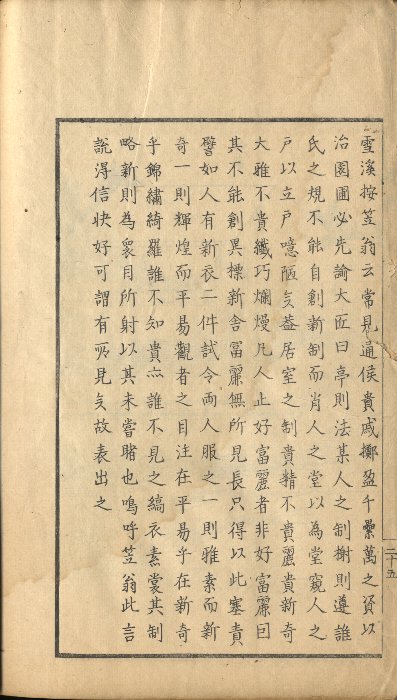 雪溪按笠翁云常見通侯貴戚擲盈千纍萬之資以
治園圃必先諭大匠曰亭則法某人之制榭則遵誰
氏之規不能自創新制而肖人之堂以為堂窺人之
户以立户噫陋矣葢居室之制貴精不貴麗貴新奇
大雅不貴纖巧爛熳凡人止好富麗者非好富麗因
其不能創異標新舍富麗無所見長只得以此塞責
譬如人有新衣二件試令兩人服之一則雅素而新
奇一則輝煌而平易觀者之目注在平易乎在新奇
乎錦繡綺羅誰不知貴亦誰不見之縞衣素裳其制
略新則為衆目所射以其未嘗睹也嗚呼笠翁此言
說得信快好可謂有所見矣故表出之
二十五